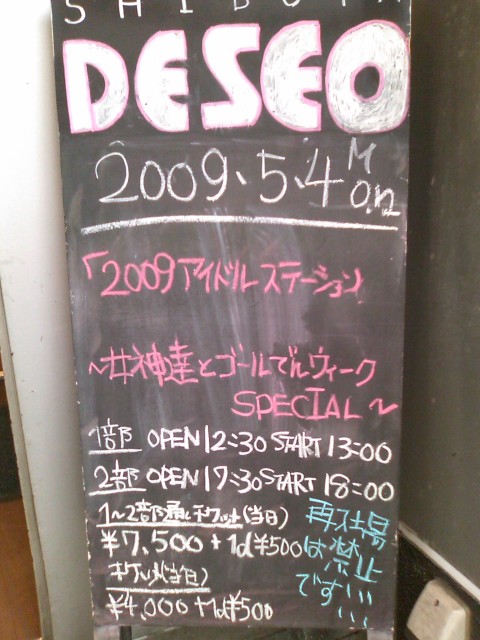 SHIBUYA
DESEO
2009.5.4 Mon
「2009アイドルステーション
~女神達とゴールでんウィーク
SPECIAL~
1部 OPEN12:30 START 13:00
2部 OPEN17:30 START 18:00
1~2部通しチケット(当日)
¥7,500+1d¥500
(当日)
¥4,000+1d¥500
再入場
は禁止
です!!!